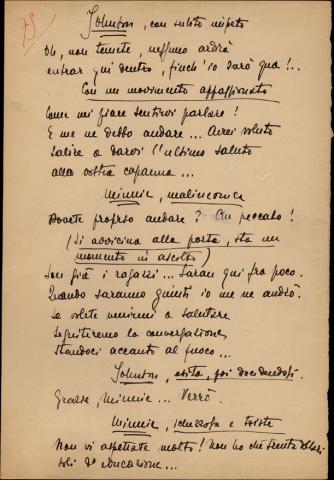 75
Johnson, con subito impeto
Oh, non temete, nessuno ardirà
entrar qui dentro, finch'io sarò qua!...
Con un movimento appassionato
Come mi piace sentirvi parlare!
E me ne debbo andare... Avrei voluto
salire a darvi l'ultimo saluto
alla vostra capanna...
Minnie, malinconica
Dovete proprio andare? Che peccato!
(Si avvicina alla porta, sta un
momento in ascolto)
Son già i ragazzi... Saran qui fra poco.
Quando saranno giunti io me ne andrò.
Se volete venirmi a salutare
seguiteremo la conversazione
standoci accanto al fuoco...
Johnson, esita, poi decidendosi.
Grazie, Minnie... Verrò.
Minnie, scherzosa e triste
Non vi aspettate molto! Non ho che trenta dollari
soli di educazione...